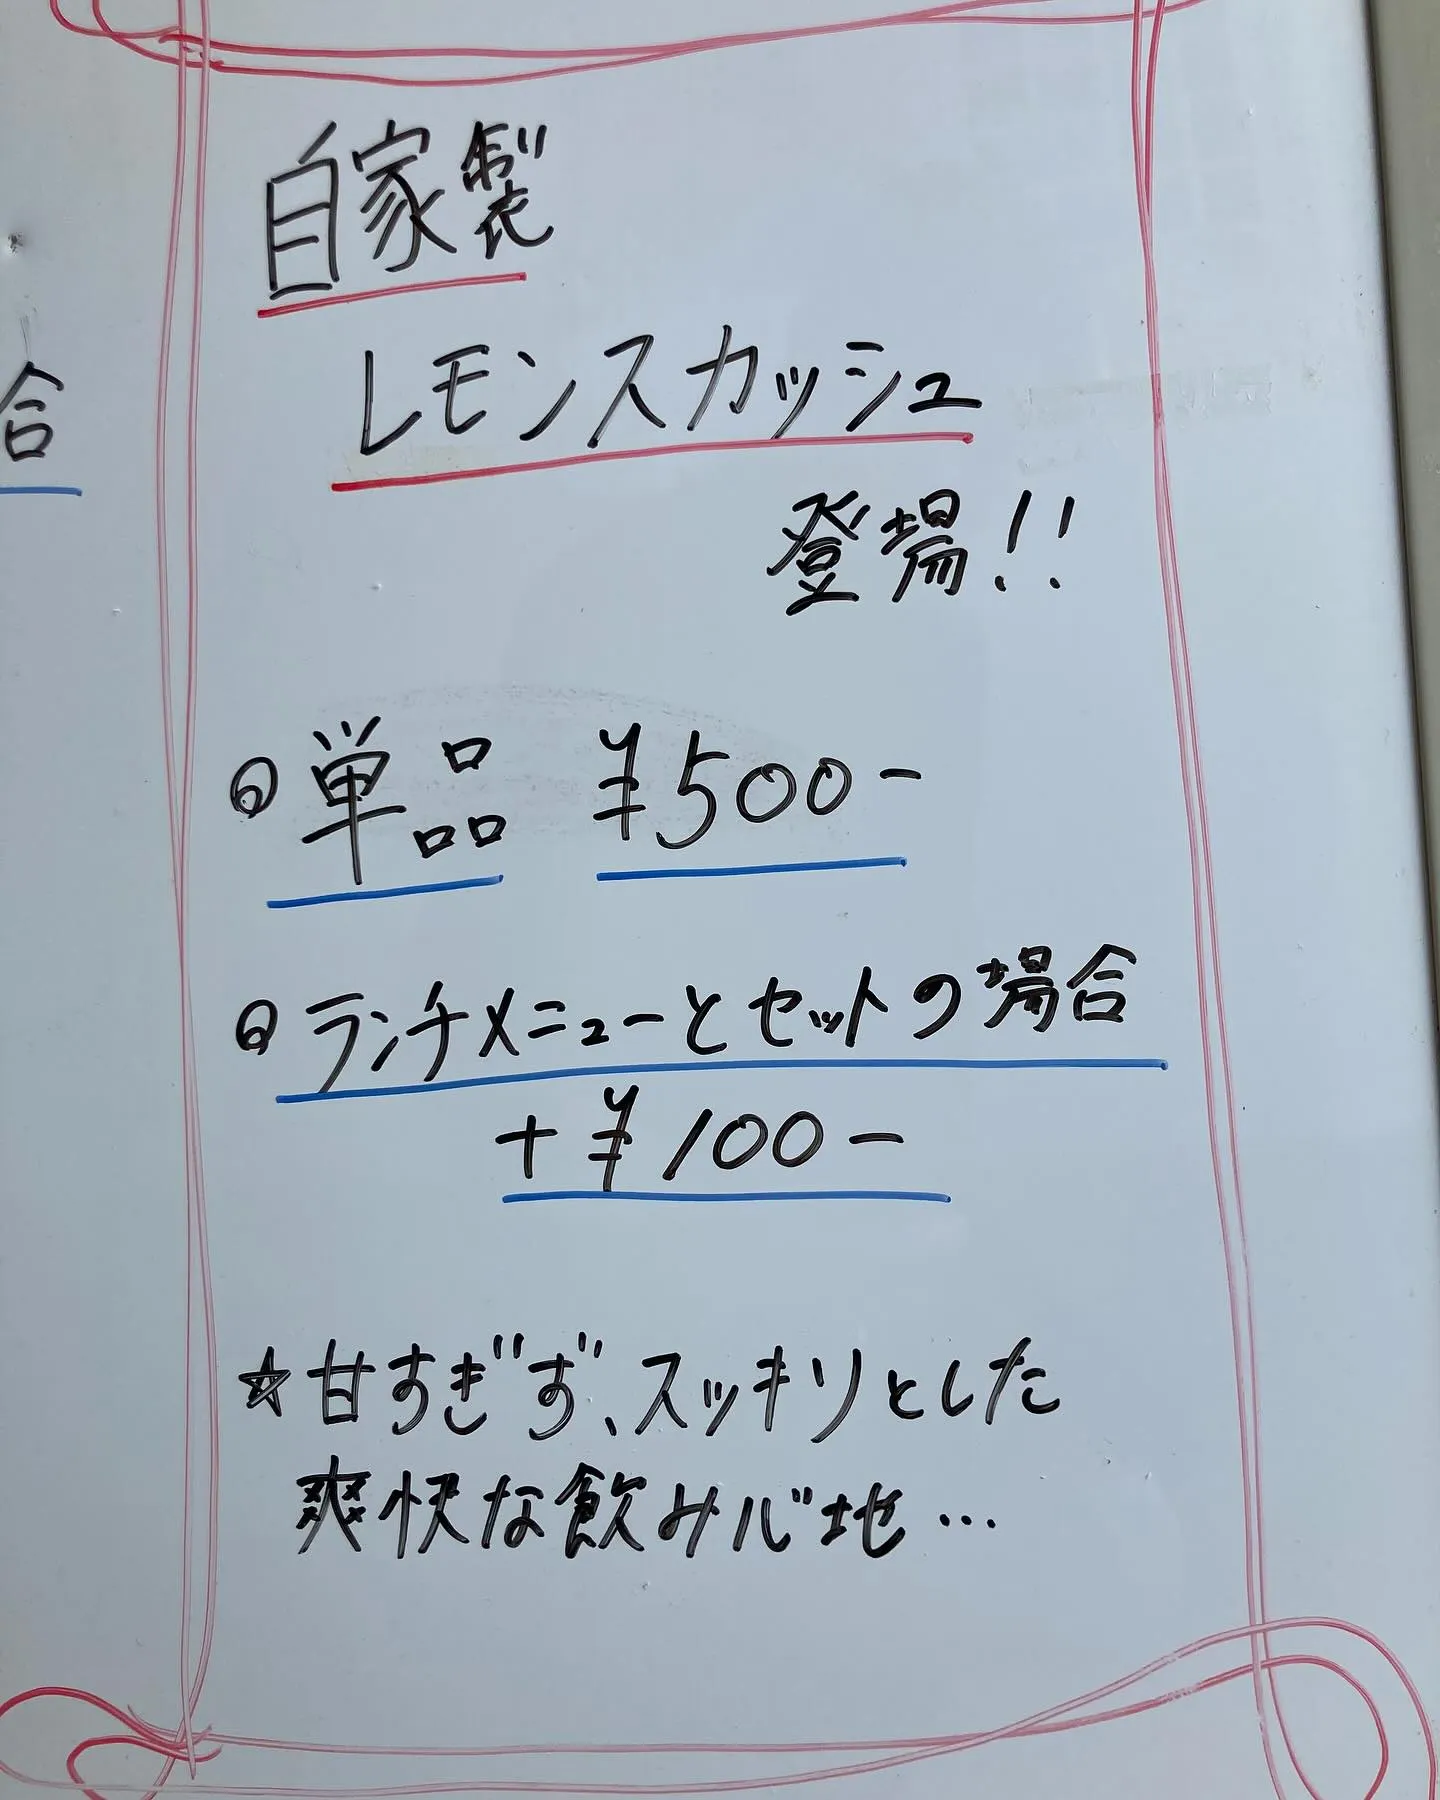 自家製
レモンスカッシュ
登場!!
合
◎単品 ¥500-
◎ランチメニューとセットの場合
+¥100-
☆甘すぎず、スッキリとした
爽快な飲み心地…